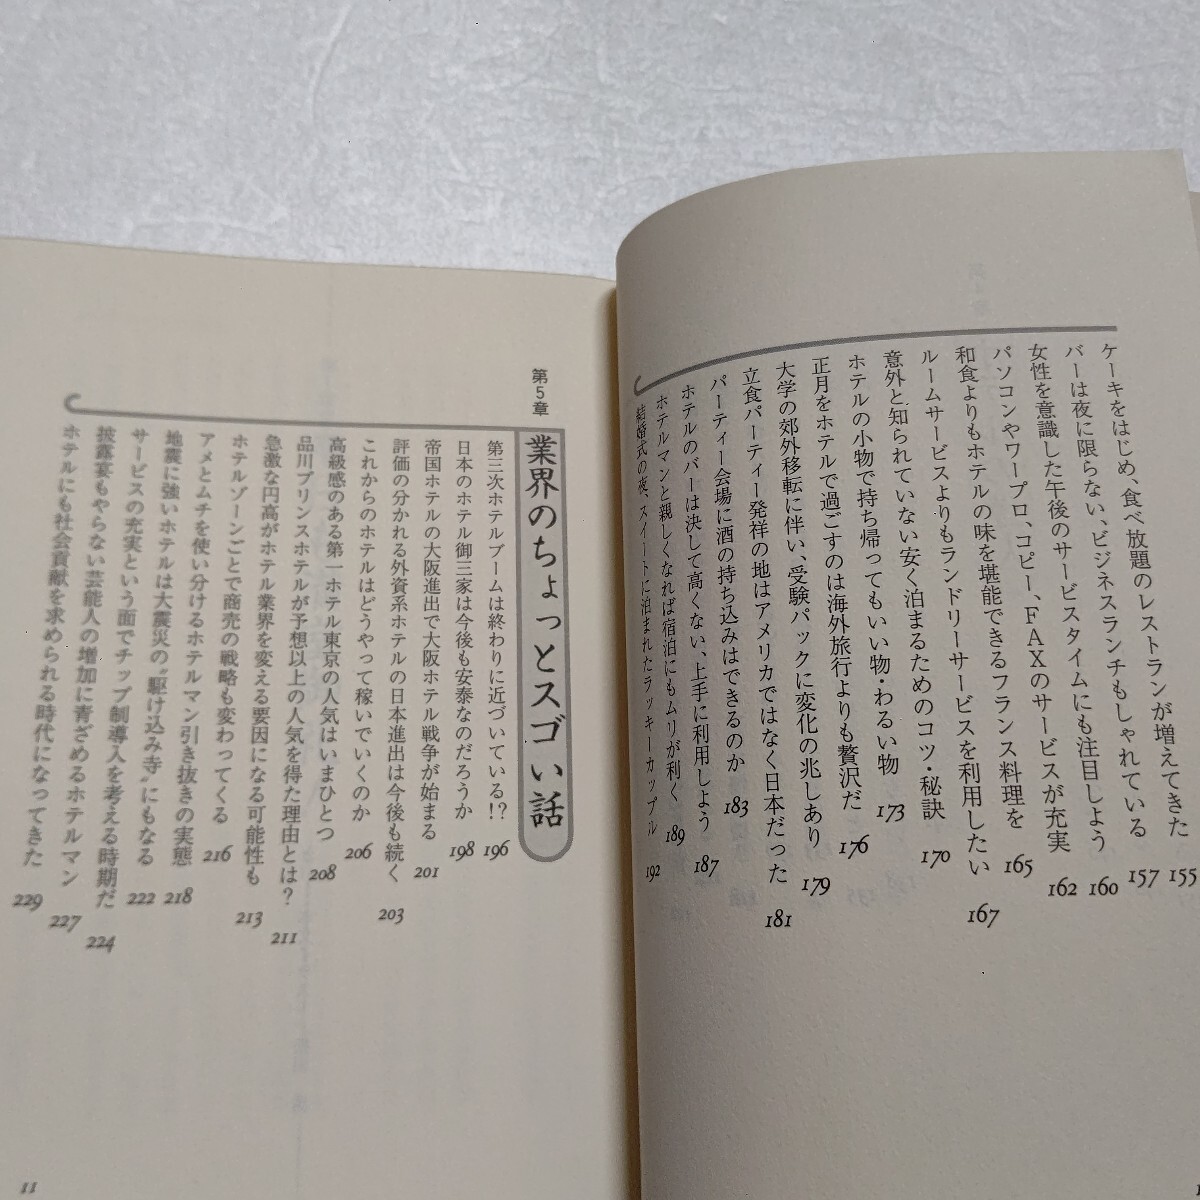 ケーキをはじめ、食べ放題のレストランが増えてきた 155
バーは夜に限らない、ビジネスランチもしゃれている 157
女性を意識した午後のサービスタイムにも注目しよう 160
パソコンやワープロ、コピー、FAXのサービスが充実 162
和食よりもホテルの味を堪能できるフランス料理を 165
ルームサービスよりもランドリーサービスを利用したい 167
意外と知られていない安く泊まるためのコツ・秘訣 170
ホテルの小物で持ち帰ってもいい物・わるい物 173
正月をホテルで過ごすのは海外旅行よりも贅沢だ 176
大学の郊外移転に伴い、受験パックに変化の兆しあり 179
立食パーティー発祥の地はアメリカではなく日本だった 181
パーティー会場に酒の持ち込みはできるのか 183
ホテルのバーは決して高くない、上手に利用しよう 187
ホテルマンと親しくなれば宿泊にもムリが利く 189
結婚式の夜、スイートに泊まれたラッキーカップル 192
第5章 業界のちょっとスゴい話
第三次ホテルブームは終わりに近づいている!? 196
日本のホテル御三家は今後も安泰なのだろうか 198
帝国ホテルの大阪進出で大阪ホテル戦争が始まる 201
評価の分かれる外資系ホテルの日本進出は今後も続く 203
これからのホテルはどうやって稼いでいくのか 206
高級感のある第一ホテル東京の人気はいまひとつ 208
品川プリンスホテルが予想以上の人気を得た理由とは? 211
急激な円高がホテル業界を変える要因になる可能性も 213
ホテルゾーンごとで商売の戦略も変わってくる 216
アメとムチを使い分けるホテルマン引き抜きの実態 218
地震に強いホテルは大震災の“駆け込み寺”にもなる 222
サービスの充実という面でチップ制導入を考える時期だ 224
披露宴もやらない芸能人の増加に青ざめるホテルマン 227
ホテルにも社会貢献を求められる時代になってきた 229
11